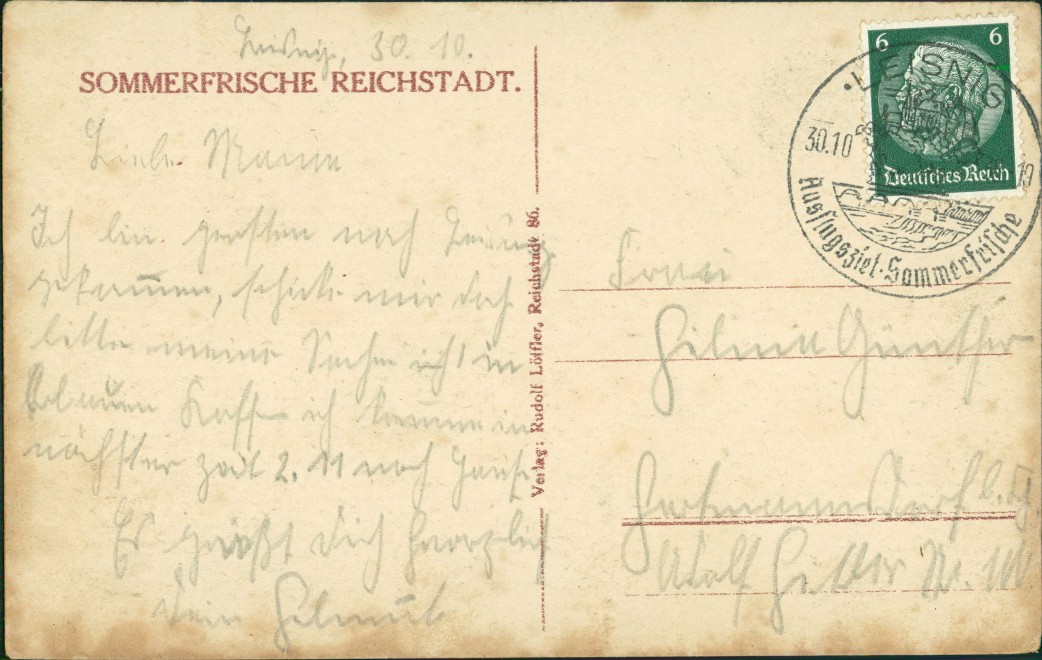 Leisnig, 30. 10.
SOMMERFRISCHE REICHSTADT.
Liebe Mama
Ich bin gestern nach Leisnig
gekommen, schicke mir doch
bitte meine Sachen in
blauen ich komme
nächster Zeit 2. 11 nach Hause
Es grüßt Dich herzlich
Dein Helmut
Verlag: Rudolf Löffler, Reichstadt 86.
6 6
Deutsches Reich
LEISNIG
30.10
Ausflugsziel · Sommerfrische
Frau
Günther
Hartmannsdorf b.
Adolf Hitler